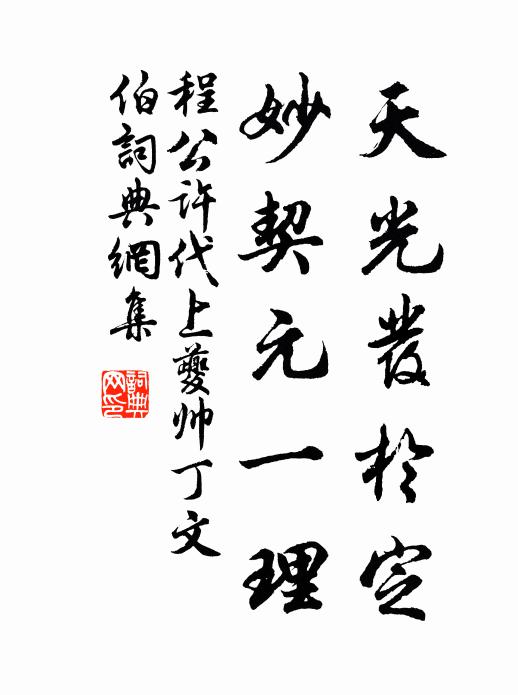 天光發於定
妙契元一理
程公許代上夔帅丁文
伯詞典網集
詞典网印